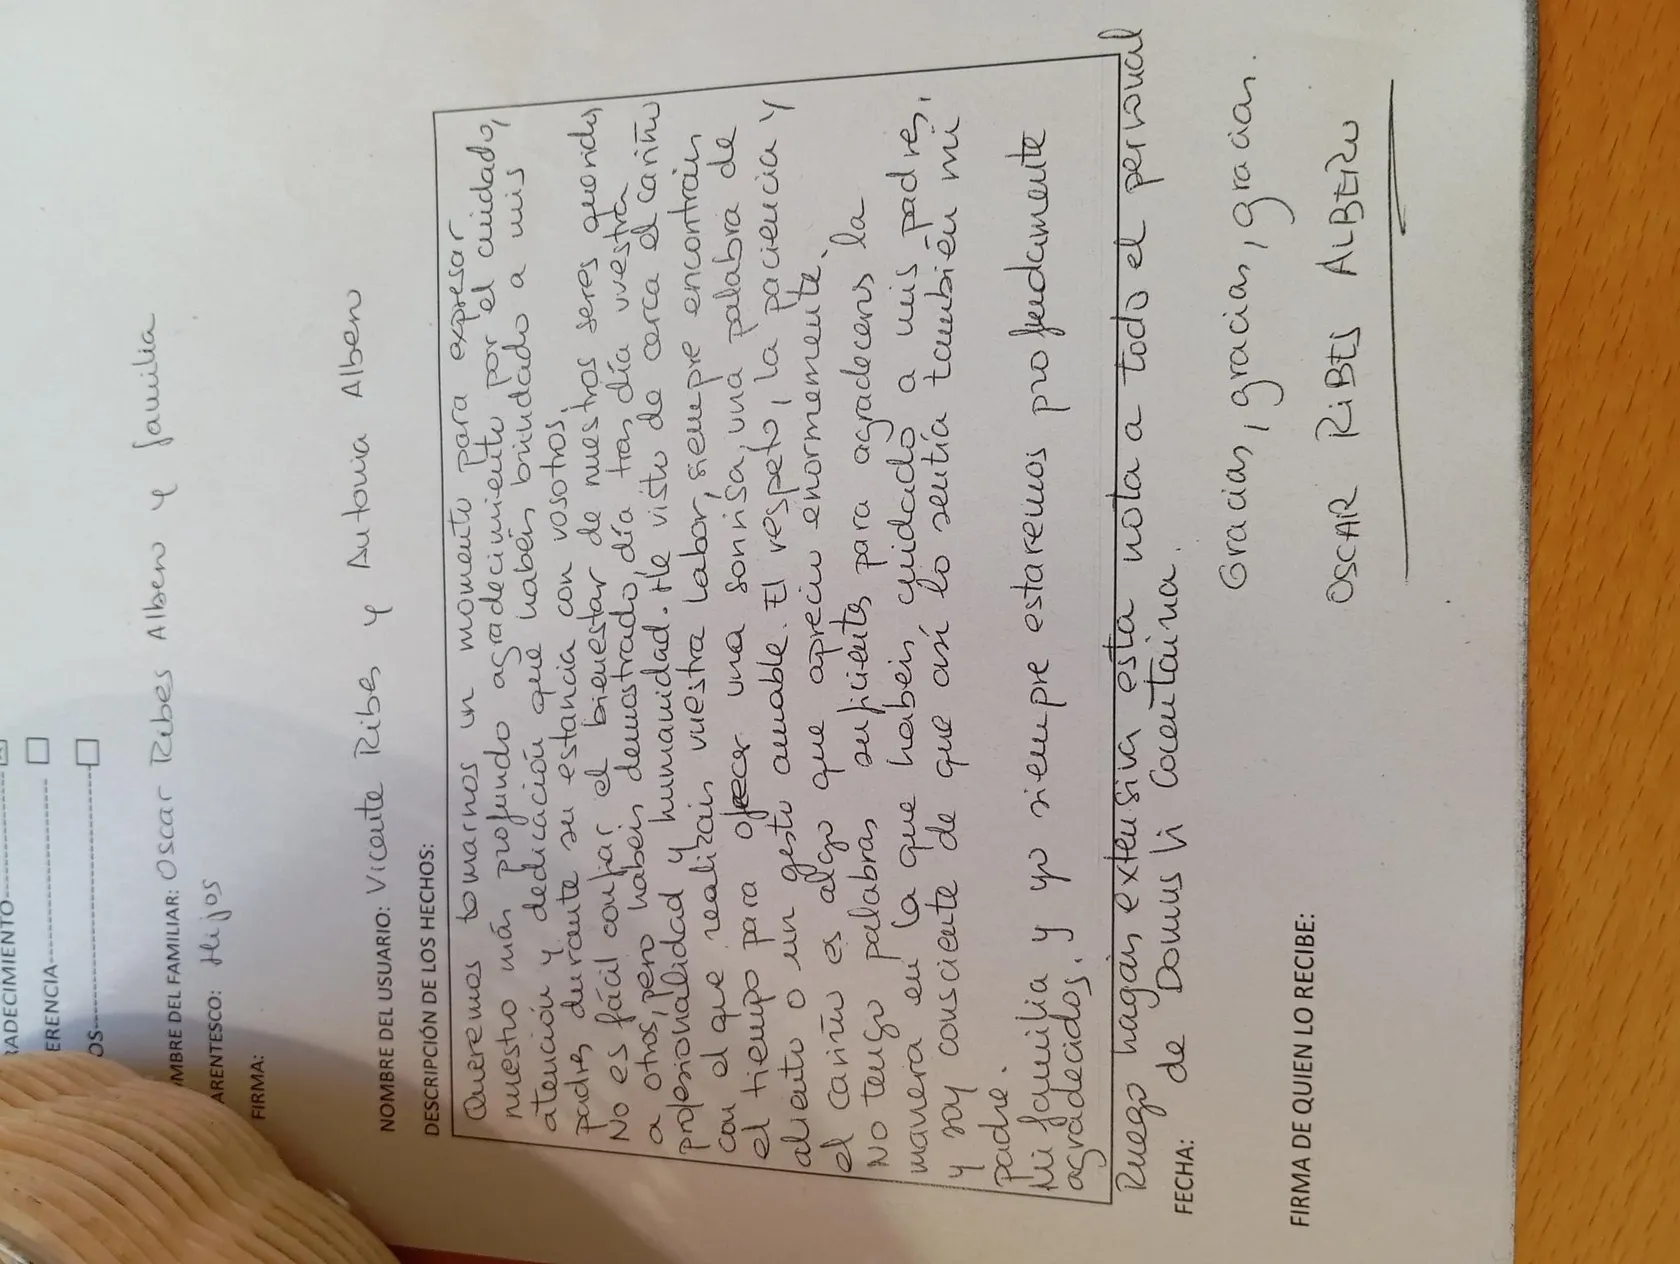 RADECIMIENTO
ERENCIA
OS
MBRE DEL FAMILIAR: Oscar Ribes Albero y familia
ARENTESCO: Hijos
FIRMA:
NOMBRE DEL USUARIO: Vicente Ribes y Antonia Albero
DESCRIPCIÓN DE LOS HECHOS:
Queremos tomarnos un momento para expresar
nuestro más profundo agradecimiento por el cuidado,
atención y dedicación que habéis brindado a mis
padres durante su estancia con vosotros.
No es fácil confiar el bienestar de nuestros seres queridos
a otros, pero habéis demostrado, día tras día vuestra
profesionalidad y humanidad. He visto de cerca el cariño
con el que realizais vuestra labor, siempre encontrais
el tiempo para ofrecer una sonrisa, una palabra de
aliento o un gesto amable. El respeto, la paciencia y
el cariño es algo que aprecio enormemente.
No tengo palabras suficientes para agradeceros la
manera en la que habéis cuidado a mis padres,
y soy consciente de que así lo sentía también mi
padre.
Mi familia y yo siempre estaremos profundamente
agradecidos.
Ruego hagan extensiva esta nota a todo el personal
de Domus Vi Cocentaina.
FECHA:
Gracias, gracias, gracias.
FIRMA DE QUIEN LO RECIBE:
OSCAR RIBES ALBERO